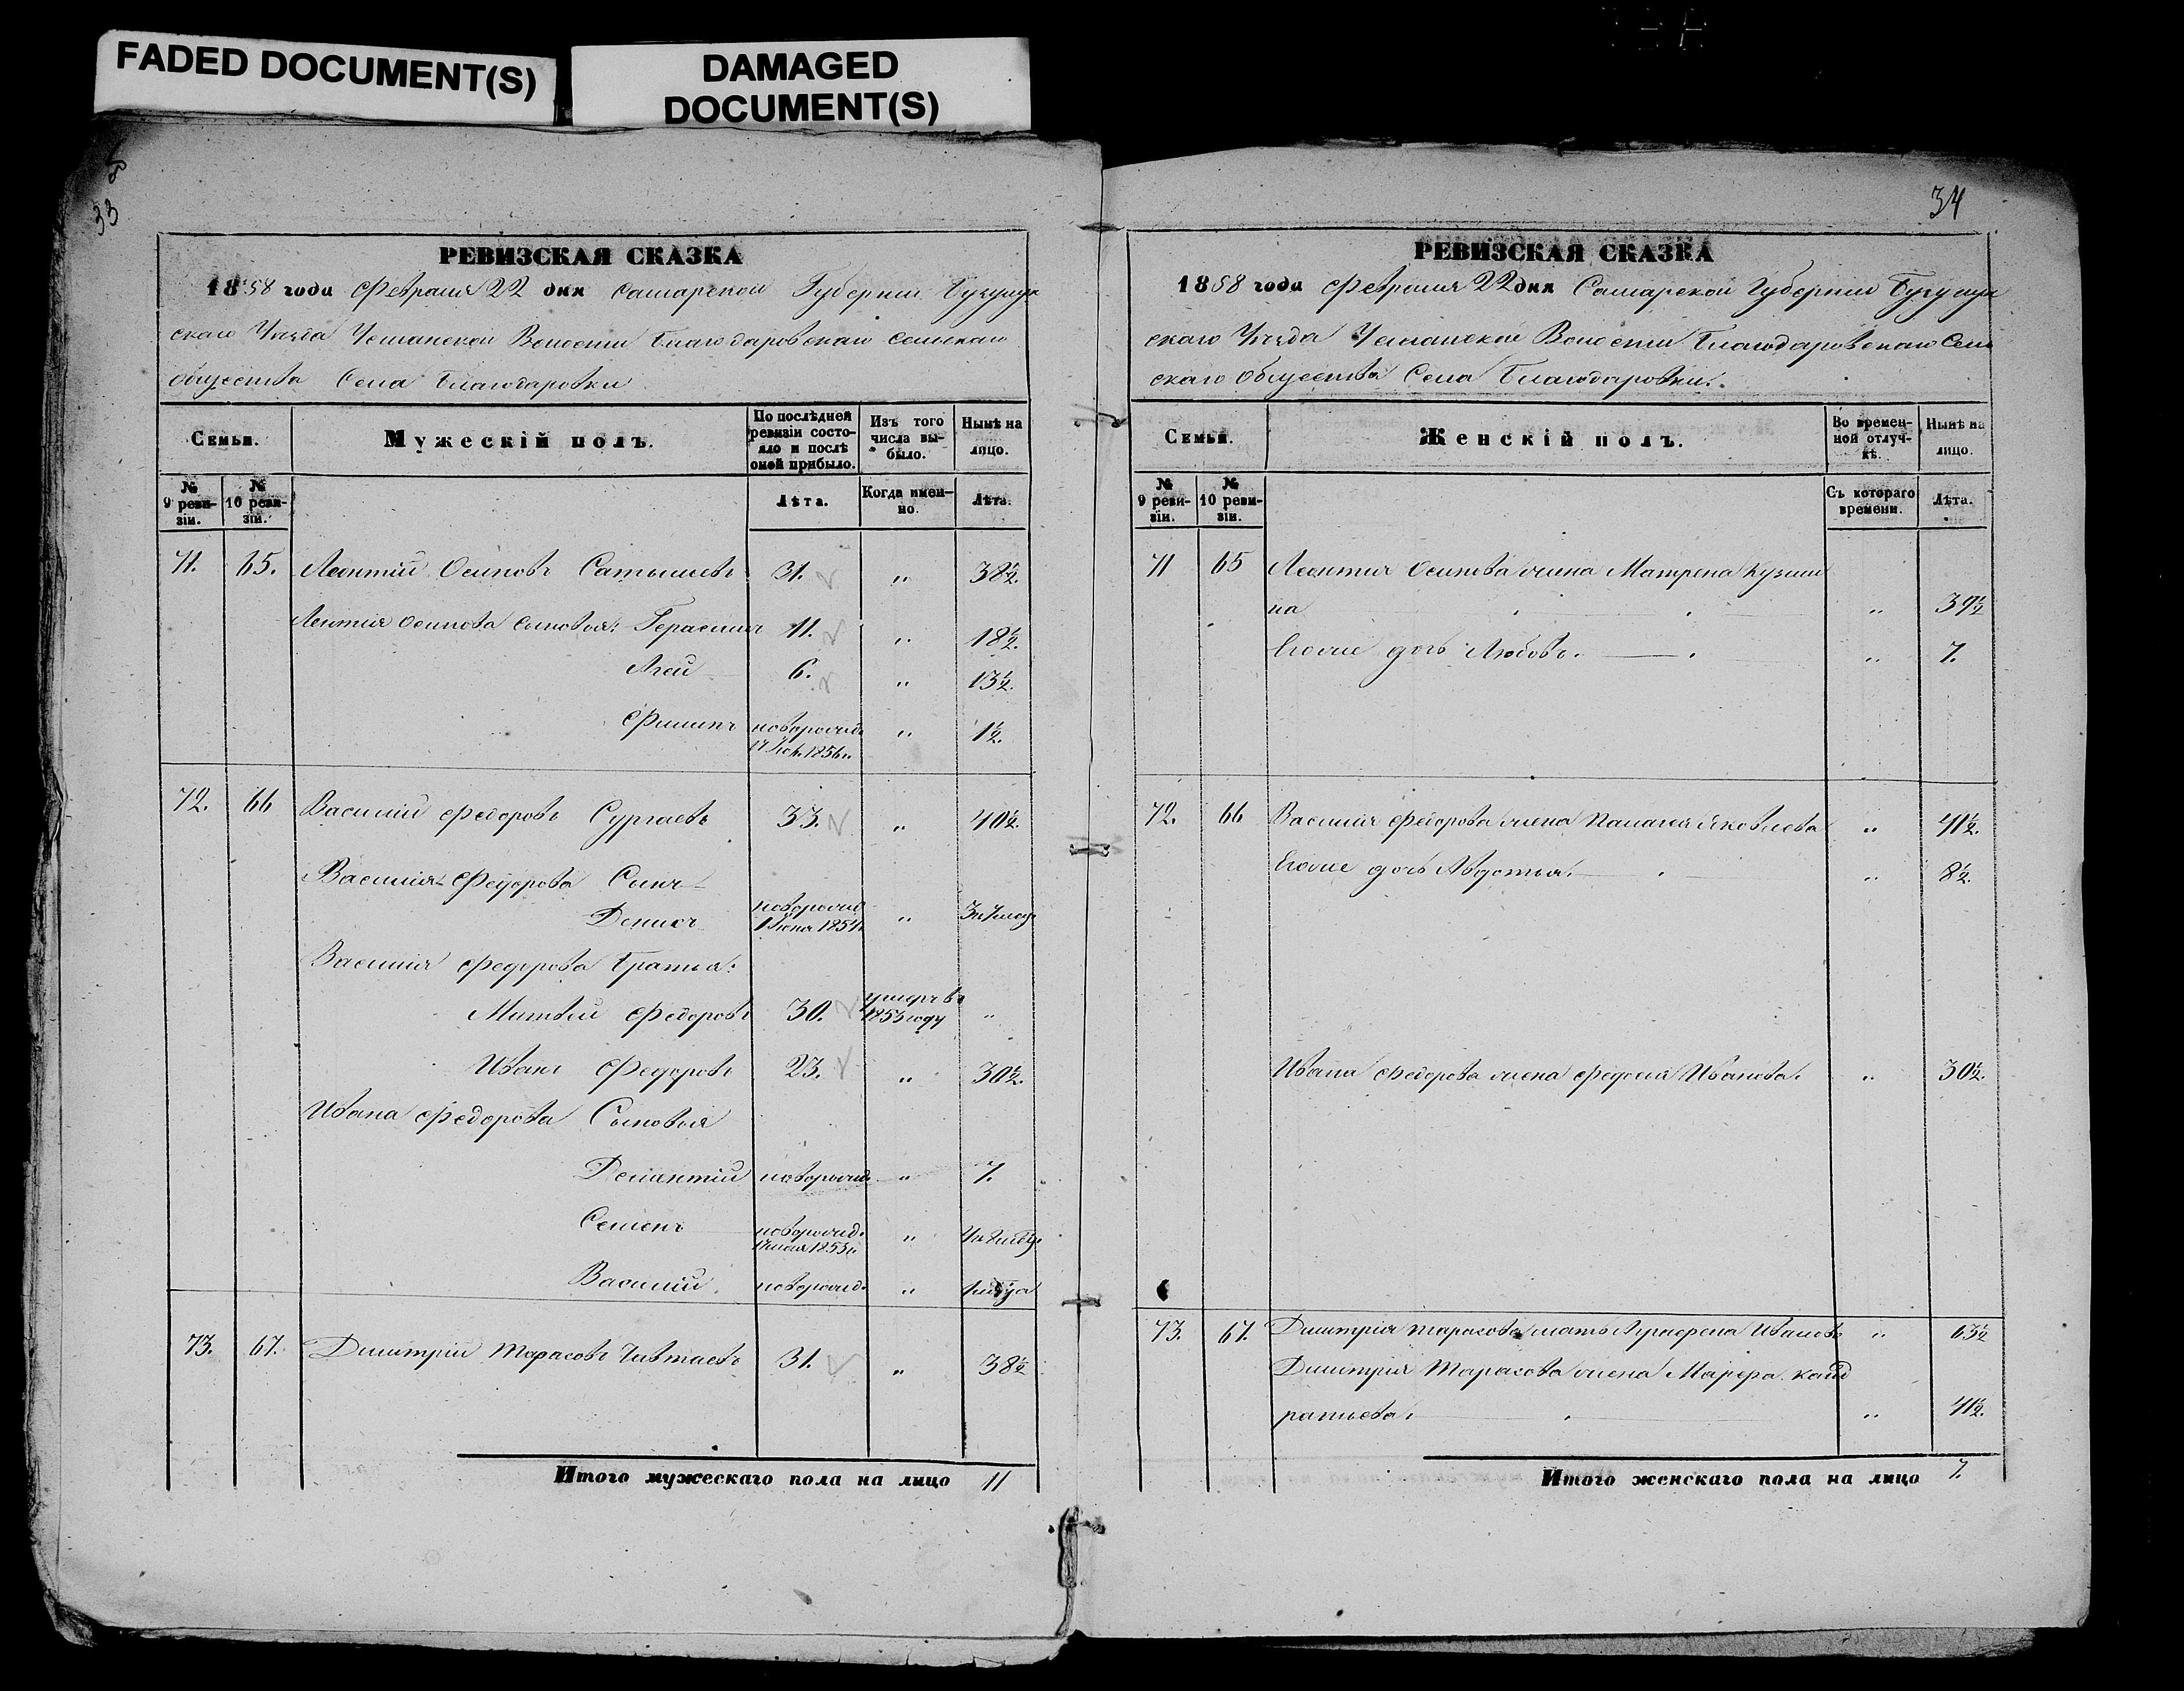 FADED DOCUMENT(S)
DAMAGED
DOCUMENT(S)
33
РЕВИЗСКАЯ СКАЗКА
1858 года Февраля 22 дня Самарской Губернiи Бугурук
скаго Уѣзда Волости Благодаровскаго Сельскаго
общества Села Благодаровки
Семьи.
Мужескiй полъ.
По послѣдней
ревизiи состо-
яло и послѣ
оной прибыло.
Изъ того
числа вы-
было.
Нынѣ на
лицо.
№
9 реви-
зiи.
№
10 реви-
зiи.
Лѣта.
Когда имен-
но.
Лѣта.
71. 65. Леонтiй Осиповъ 31. " 38½.
Леонтiя Осипова сыновья: Герасимъ 11. " 18½.
Агей 6. " 13½.
Филипъ новорожд. " 1½.
1856г.
72. 66 Василiй Федоровъ Сургаевъ 33. " 40½.
Василiя Федорова Сынъ
Денисъ новорожд " 3 и 7 мѣс
1 1854
Василiя Федорова Братья:
Матвѣй Федоровъ 30. умеръ въ "
1855 году
Иванъ Федоровъ 23. " 30½.
Ивана Федорова Сыновья
новорожд " 7.
Семенъ новорожд. "
1853г
Василiй новорожд. "
73. 67. Димитрiй Тарасовъ 31. " 38½
Итого мужескаго пола на лицо 11
34
РЕВИЗСКАЯ СКАЗКА
1858 года Февраля 22 дня Самарской Губернiи
скаго Уѣзда Волости Благодаровскаго Сель
скаго Общества Села Благодаровки.
Семьи.
Женскiй полъ.
Во времен-
ной отлуч-
кѣ.
Нынѣ на
лицо.
№
9 реви-
зiи.
№
10 реви-
зiи.
Съ котораго
времени.
Лѣта.
71 65 Леонтiя Осипова жена Матрена Кузми
на " 39½
Егоже дочь Любовь. " 7.
72. 66 Василiя Федорова жена Палагея Яковлева " 41½.
Егоже дочь Авдотья. " 8½.
Ивана Федорова жена Федосья Иванова. " 30½.
73. 67. Димитрiя Тарасова мать Аграфена Иванов " 63½
Димитрiя Тарасова жена Марфа Конд
ратьева. " 41½.
Итого женскаго пола на лицо 7.